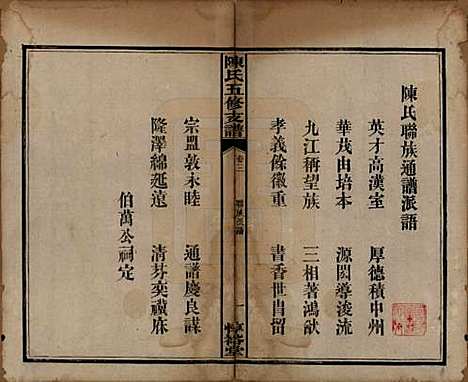 陳氏聯族通譜派語
英才高漢室 厚德積中州
華茂由培本 源閎導浚流
九江稱望族 三相著鴻猷
孝義餘徽重 書香世昌留
陳氏五修支譜
卷二
惇裕堂
宗盟敦永睦 通譜慶良謀
隆澤綿延遠 清芬奕禩庥
伯萬公祠定